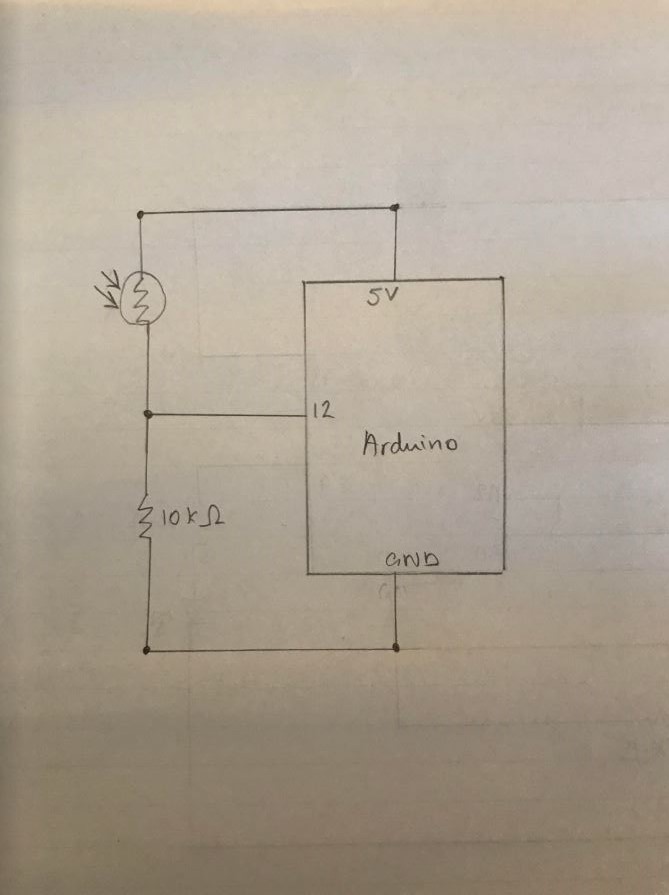 5V
12
Arduino
10kΩ
GND